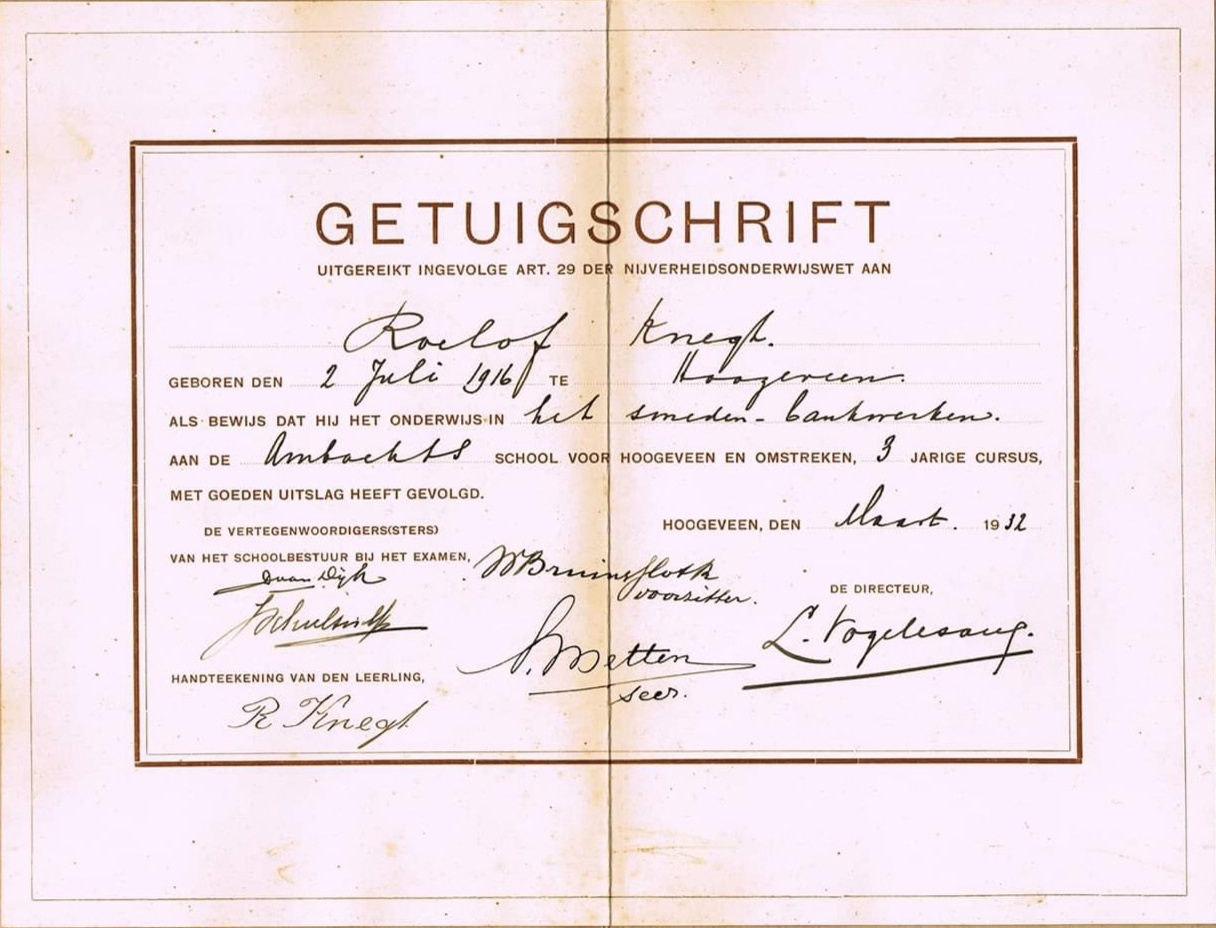 GETUIGSCHRIFT
UITGEREIKT INGEVOLGE ART. 29 DER NIJVERHEIDSONDERWIJSWET AAN
Roelof Knegt.
GEBOREN DEN 2 Juli 1916 TE Hoogeveen.
ALS BEWIJS DAT HIJ HET ONDERWIJS IN het smeden-bankwerken.
AAN DE Ambachts SCHOOL VOOR HOOGEVEEN EN OMSTREKEN, 3 JARIGE CURSUS,
MET GOEDEN UITSLAG HEEFT GEVOLGD.
HOOGEVEEN, DEN Maart. 1932
DE VERTEGENWOORDIGERS(STERS)
VAN HET SCHOOLBESTUUR BIJ HET EXAMEN,
van Dijk
voorzitter.
DE DIRECTEUR,
L. Vogelesang.
S. Metten
secr.
HANDTEEKENING VAN DEN LEERLING,
R Knegt